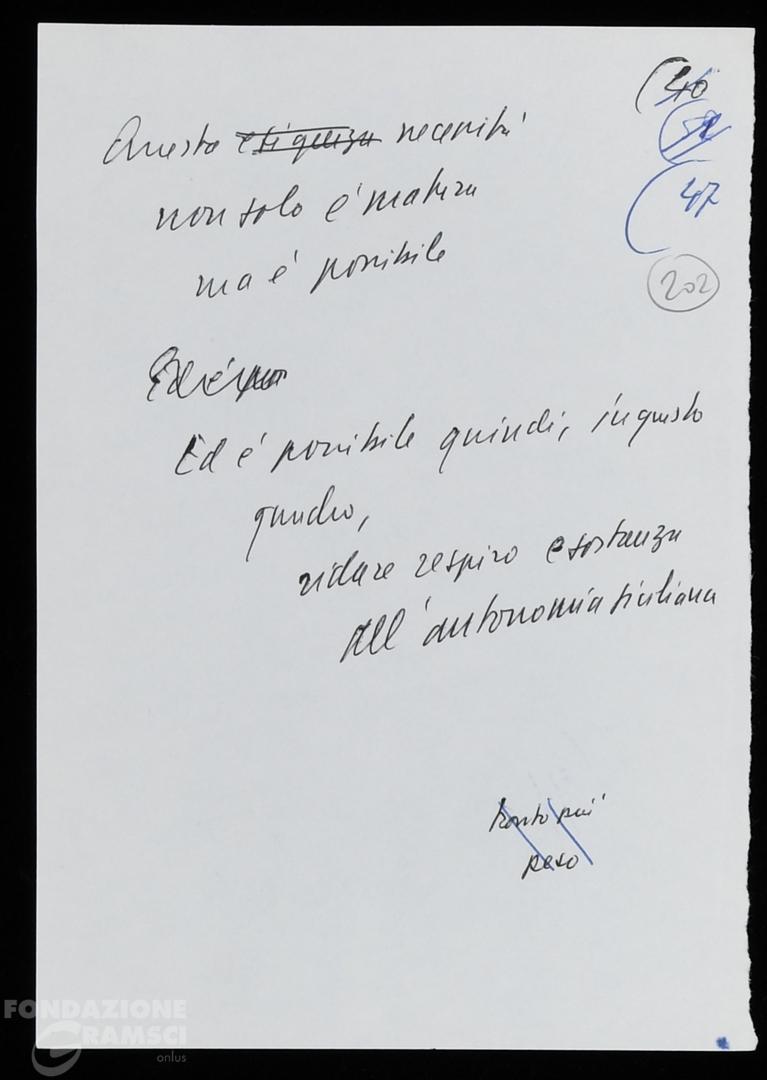 (40
47
202
Questa esigenza necessità
non solo è matura
ma è possibile
Ed è pos
Ed è possibile quindi, in questo
quadro,
ridare respiro e sostanza
all'autonomia siciliana
più
peso
FONDAZIONE
GRAMSCI
onlus